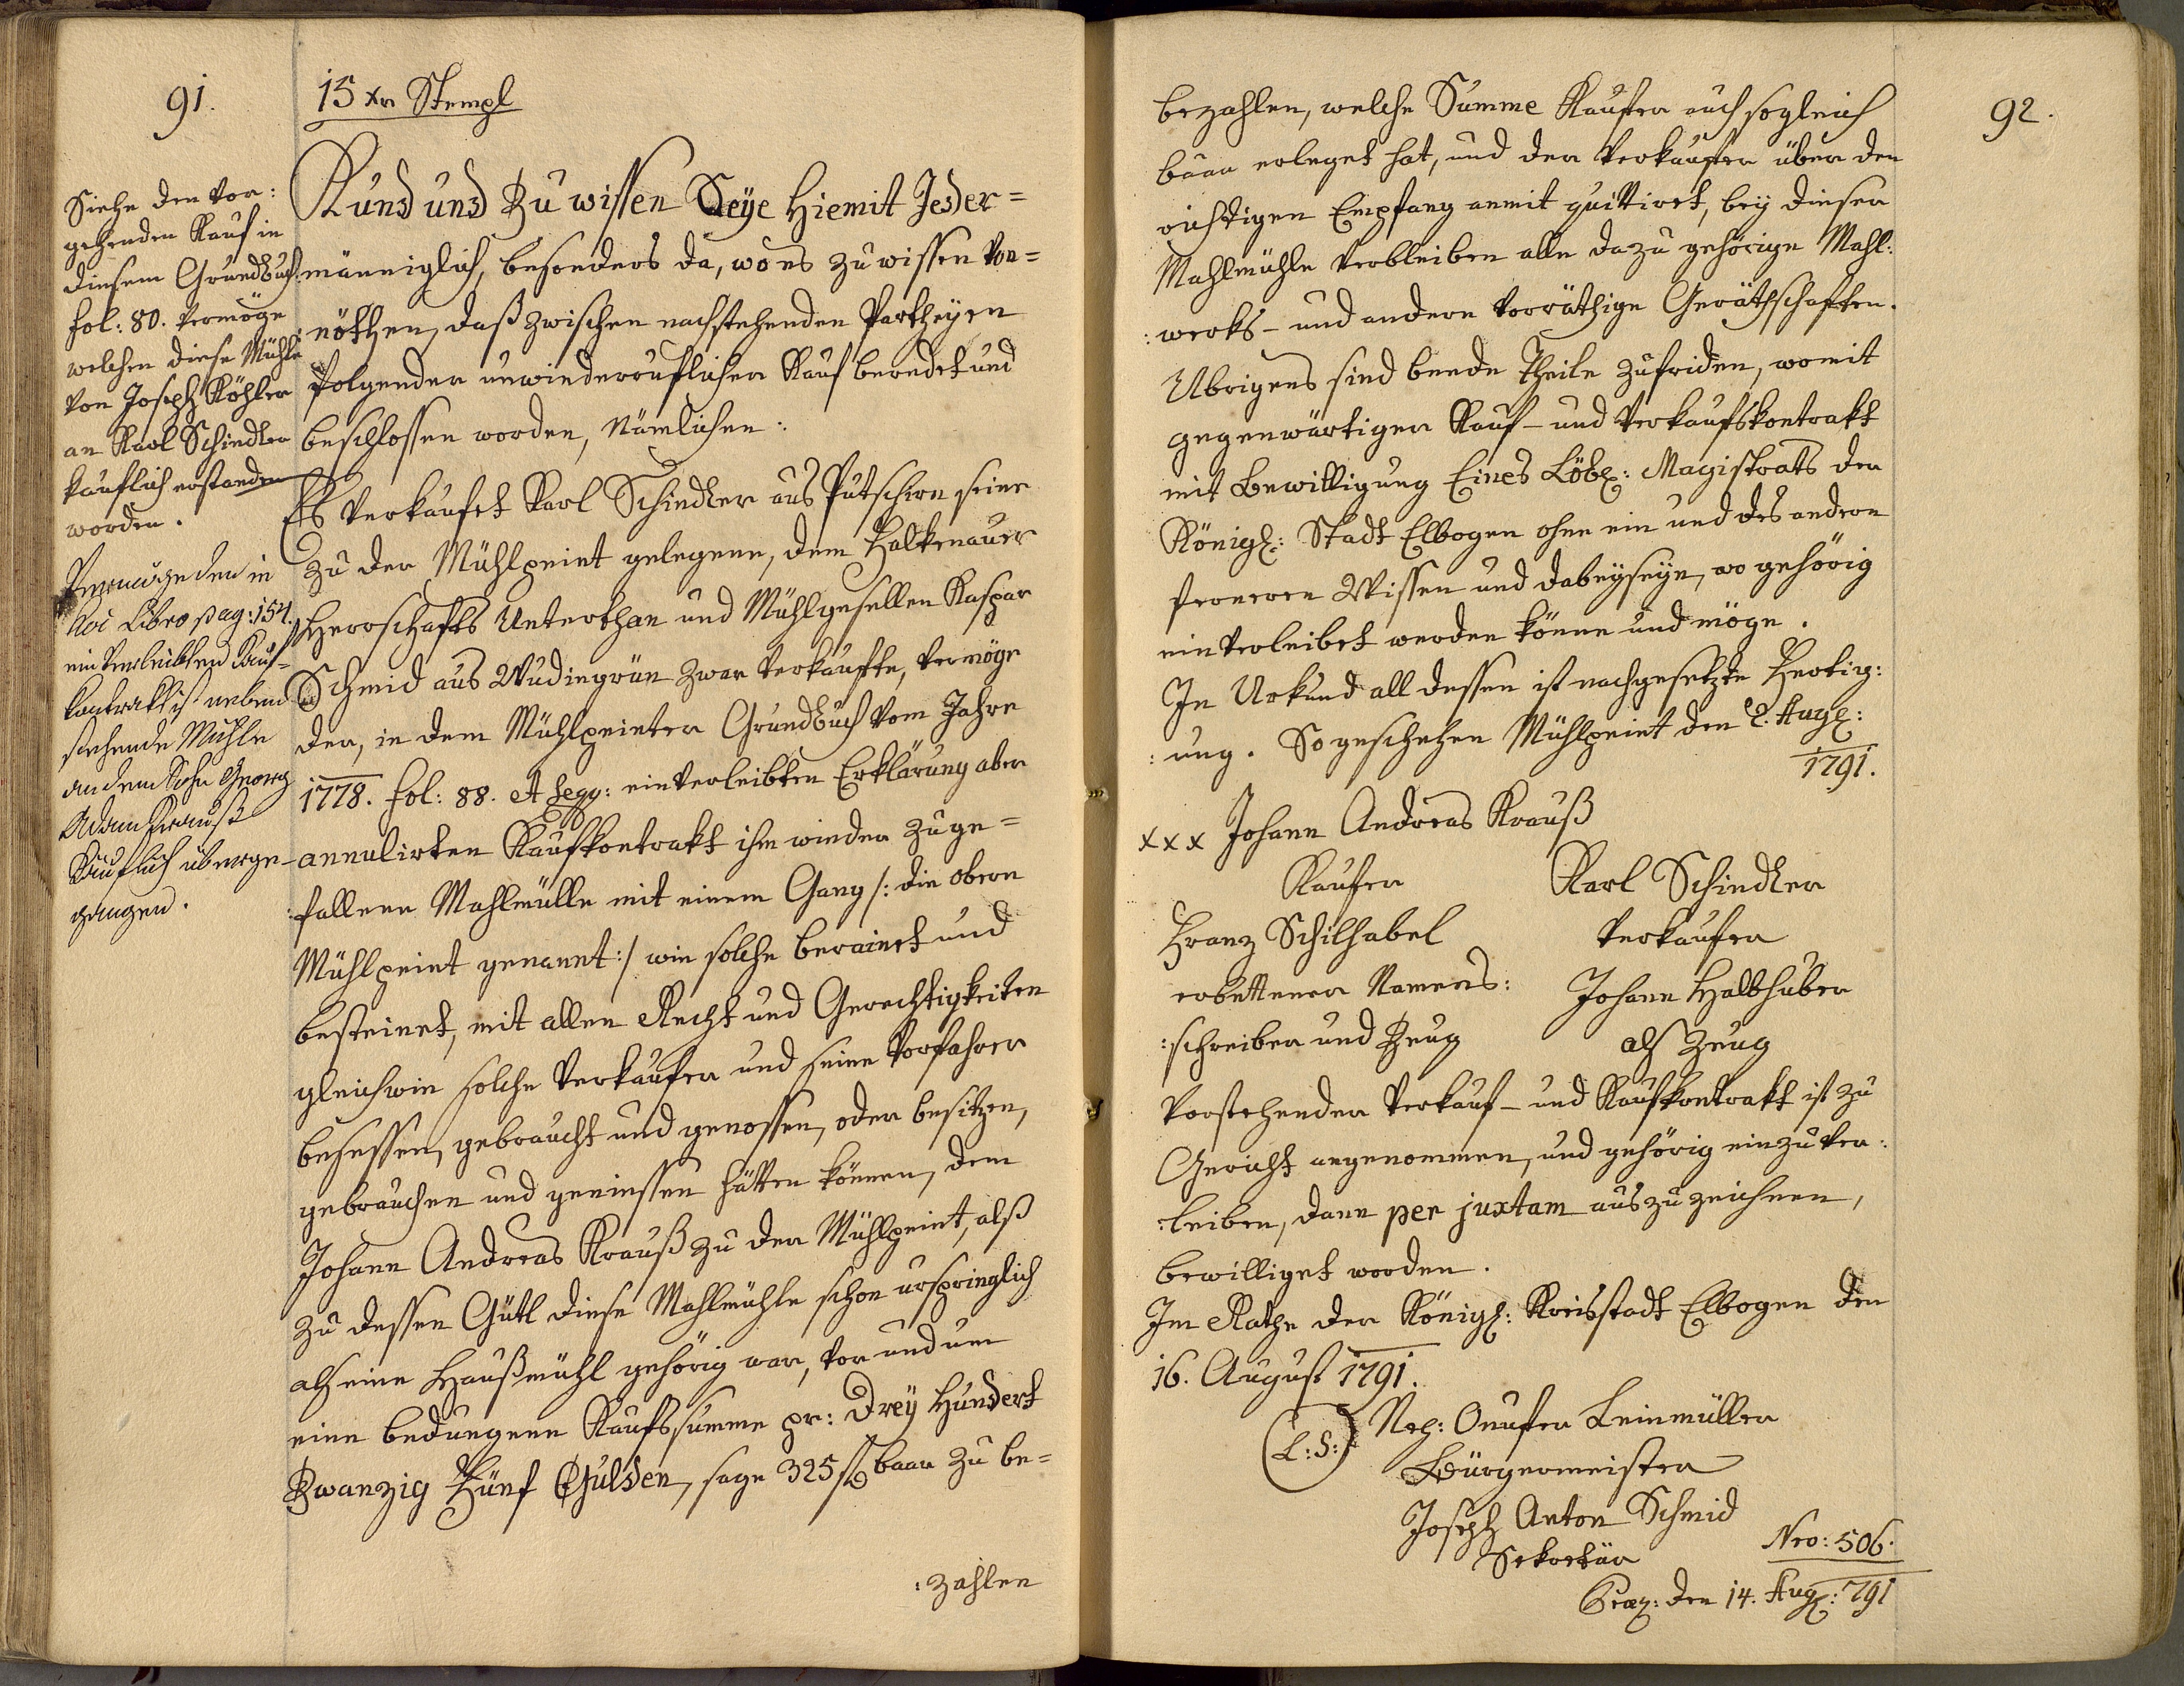 91.
15 xr Stempl
Siehe den vor:
gehenden Kauf in
diesem Grundbuch
fol: 80. vermöge
welchen diese Mühle
von Joseph Köhler
an Karl Schindler
käuflich erstanden
worden.
Vermög den in
hoc Libro pag: 154.
einverleibten Kauf-
kontrakt ist neben
stehende Mühle
an dem Sohn Georg
Adam Krauß
Käuflich überge-
gangen.
Kund und Zu wissen Seye Hiemit Jeder=
männiglich, besonders da, wo es zu wissen von=
nöthen, daß zwischen nachstehenden Partheyen
folgender unwiederruflicher Kauf beredet und
beschlossen worden, Nämlichen:
Es verkaufet Karl Schindler aus Putschirn seine
zu der Mühlpeint gelegene, dem Falkenauer
Herrschafts Unterthan und Mühlgesellen Kaspar
Schmid aus Wudingrün zwar verkaufte, vermöge
der, in dem Mühlpeinter Grundbuch vom Jahre
1778. fol: 88. et segg: einverleibten Erklärung aber
annulirten Kaufkontrakt ihm wieder zuge=
:fallene Mahlmülle mit einem Gang /: die obere
Mühlpeint genannt :/ wie solche berainet und
besteinet, mit allen Recht und Gerechtigkeiten
gleichwie solche Verkaufer und seine Vorfahrer
besessen, gebraucht und genossen, oder besitzen,
gebrauchen und geniessen hätten können, dem
Johann Andreas Krauß zu der Mühlpeint, alß
zu dessen Gütl diese Mahlmühle schon urspringlich
als eine Haußmühl gehörig war, vor und um
eine bedungene Kaufssumme pr: Drey Hundert
Zwanzig Fünf Gulden, sage 325 f baar zu be=
:zahlen
92.
bezahlen, welche Summe Kaufer auch sogleich
baar erleget hat, und der Verkaufer über den
richtigen Empfang anmit quittiret, bey dieser
Mahlmühle verbleiben alle dazu gehörige Mahl:
:werks- und andere vorräthige Geräthschaften.
Ubrigens sind beede Theile zufriden, womit
gegenwärtiger Kauf- und Verkaufskontrakt
mit Bewilligung Eines Löbl: Magistrats der
Königl: Stadt Elbogen ohne ein und des andern
ferneren Wissen und dabeyseyn, wo gehörig
einverleibet werden könne und möge.
In Urkund all dessen ist nachgesetzte Fertig:
:ung. So geschehen Mühlpeint den 2. Augl:
1791.
xxx Johann Andreas Krauß
Kaufer
Karl Schindler
Verkaufer
Franz Schilhabel
erbettener Namens:
:schreiber und Zeug
Johann Halbhuber
als Zeug
Vorstehender Verkauf- und Kaufkontrakt ist zu
Gericht angenommen, und gehörig einzuver:
:leiben, dann per juxtam auszuzeichnen,
bewilliget worden.
Im Rathe der Königl: Kreisstadt Elbogen den
16. August 1791.
(L:S:)
Nep: Onufer Leinmüller
Bürgermeister
Joseph Anton Schmid
Sekretär
Nro: 506.
Præs: den 14. Aug: 791